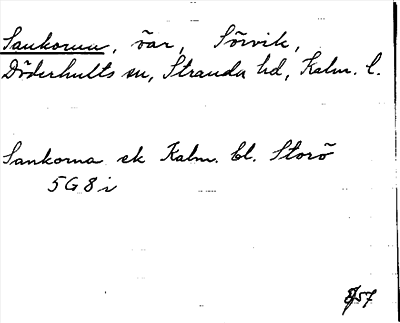 Sankorna, öar, Sörvik,
Döderhults sn, Stranda hd, Kalm. l.
Sankorna ek Kalm. bl. Storö
5G8i
57